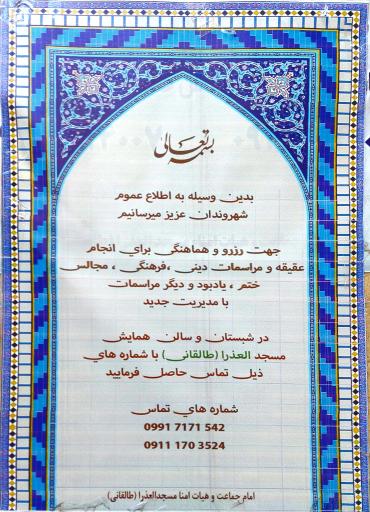 بسمه تعالی
بدین وسیله به اطلاع عموم
شهروندان عزیز میرسانیم
جهت رزرو و هماهنگی براي انجام
عقیقه و مراسمات دینی ،فرهنگی ، مجالس
ختم ، یادبود و دیگر مراسمات
با مدیریت جدید
در شبستان و سالن همایش
مسجد العذرا (طالقانی) با شماره هاي
ذیل تماس حاصل فرمایید
شماره هاي تماس
0991 7171 542
0911 170 3524
امام جماعت و هیات امنا مسجدالعذرا (طالقانی)